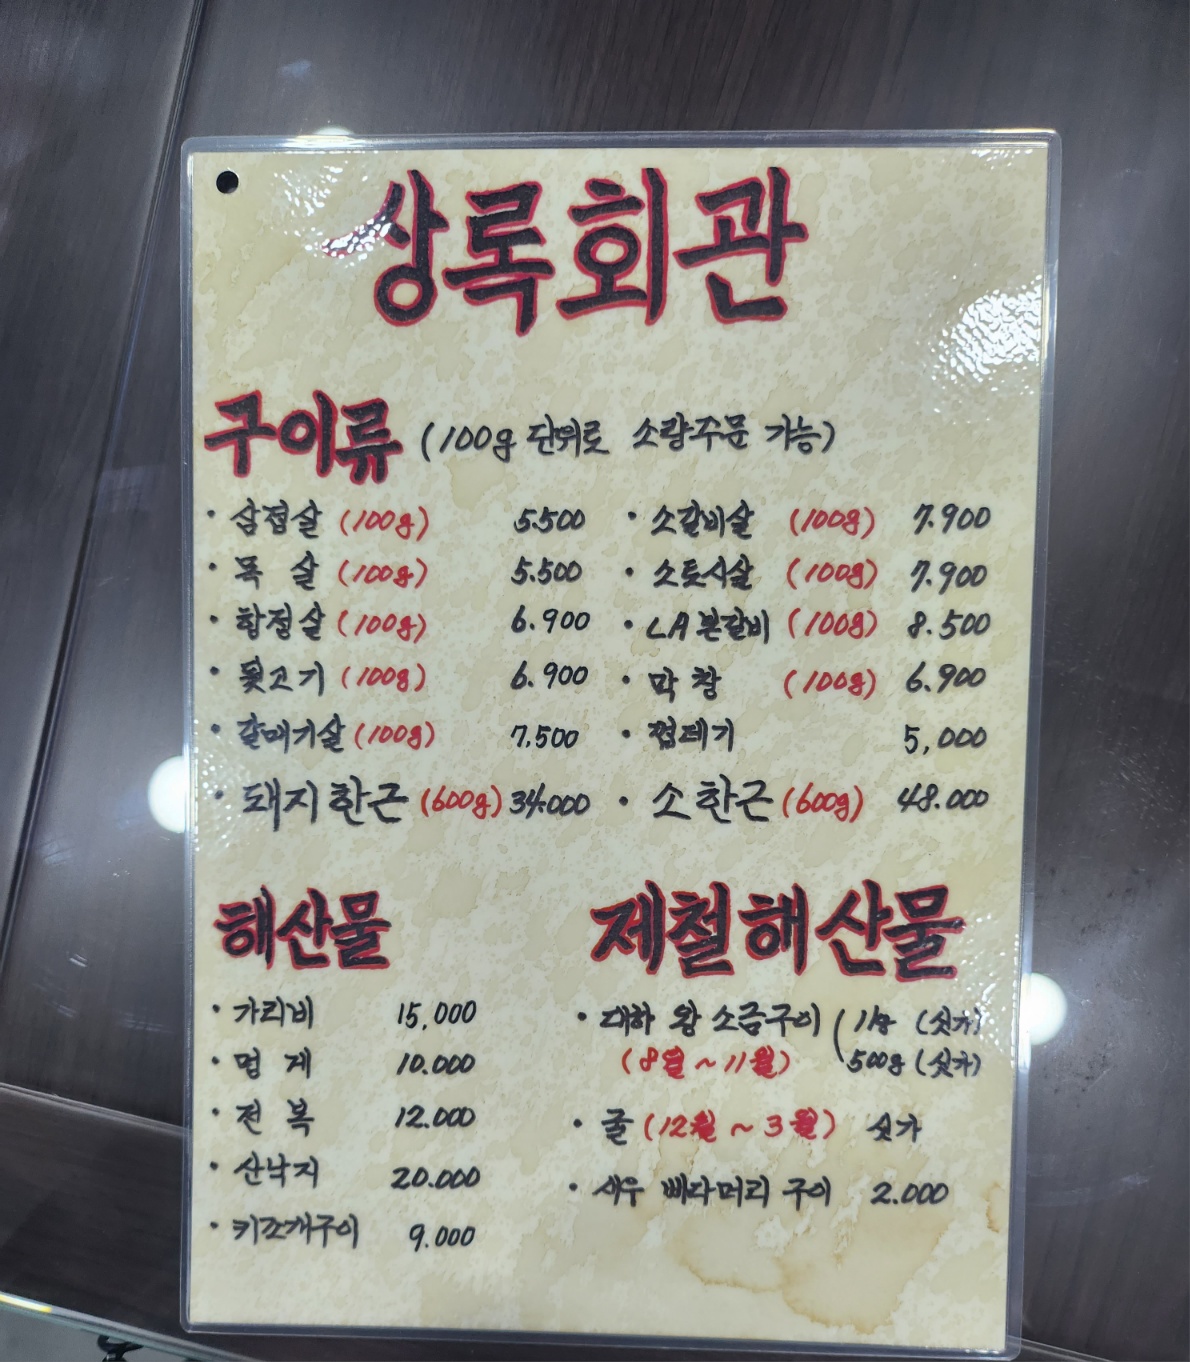 상록회관
구이류 (100g 단위로 소량주문 가능)
· 삼겹살 (100g) 5.500 · 소갈비살 (100g) 7.900
· 목 살 (100g) 5.500 · 소토시살 (100g) 7.900
· 항정살 (100g) 6.900 · LA본갈비 (100g) 8.500
· 뒷고기 (100g) 6.900 · 막창 (100g) 6.900
· 갈매기살 (100g) 7.500 · 껍데기 5,000
· 돼지한근 (600g) 34.000 · 소한근 (600g) 48.000
해산물 제철해산물
· 가리비 15,000 · 대하 왕 소금구이 ( 1kg (싯가)
· 멍 게 10.000 (8월 ~ 11월) 500g (싯가)
· 전 복 12.000 · 굴 (12월 ~ 3월) 싯가
· 산낙지 20.000 · 새우 빼다머리 구이 2.000
· 키조개구이 9.000